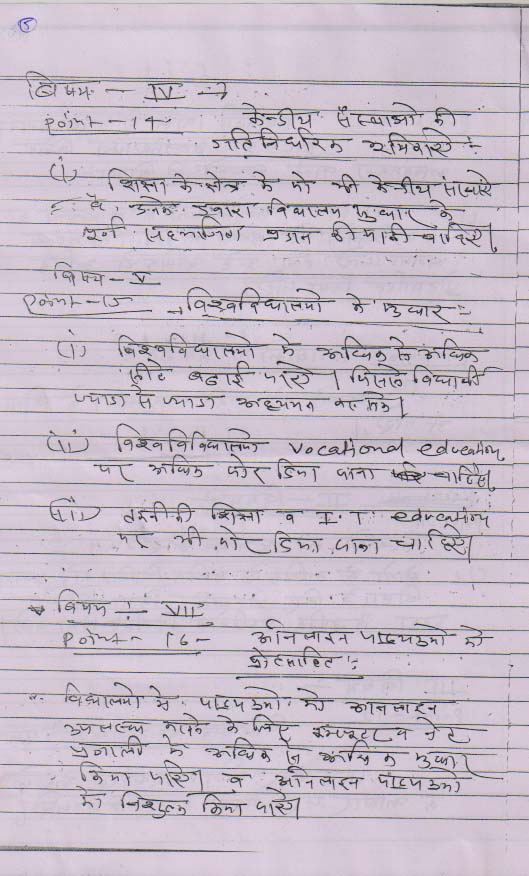 5
विषय - IV →
Point - 14 - केन्द्रीय संस्थाओं की
गतिनिर्धारक भूमिकाएं :-
(i) शिक्षा के क्षेत्र के जो भी केन्द्रीय संस्थाएं
है, उनके द्वारा विद्यालय सुधार के
पूर्ण सहभागिता प्रदान की जानी चाहिए।
विषय - V
Point - 15 → विश्वविद्यालयो मे सुधार :-
(i) विश्वविद्यालयो मे अधिक से अधिक
सीटे बढाई जाए। जिससे विद्यार्थी
ज्यादा से ज्यादा अध्ययन कर सके।
(ii) विश्वविविद्यालयो vocational education
पर अधिक जोर दिया जाना चाहिए
(iii) तकनीकी शिक्षा व I. T. education
पर भी जोर दिया जाना चाहिए।
विषय :- VII
Point - 16 - ऑनलाइन पाठ्यक्रमो को
प्रोत्साहित :-
विद्यालयो मे पाठ्यक्रमो को ऑनलाइन
उपलब्ध कराने के लिए कम्प्यूटर व नेट
प्रणाली मे अधिक से अधिक सुधार
किया जाए। व ऑनलाइन पाठ्यक्रमो
को निशुल्क किया जाए।